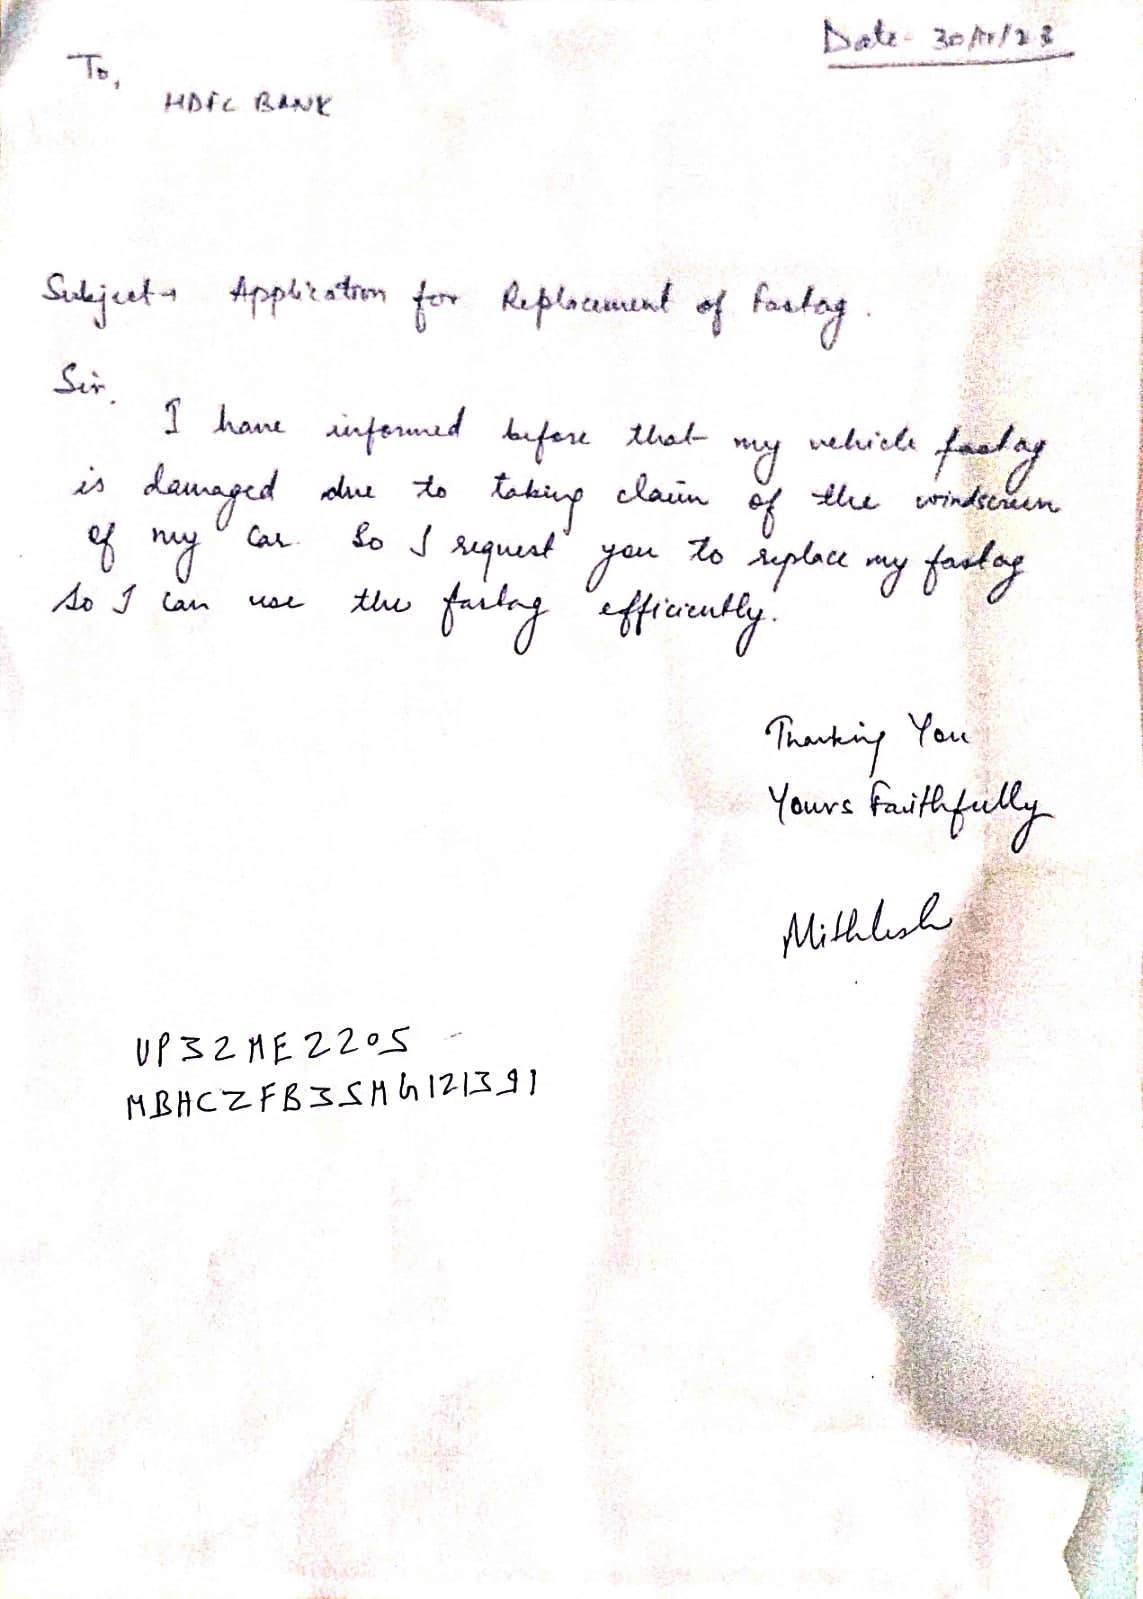 Date - 30/11/23
To,
HDFC BANK
Subject → Application for Replacement of Fastag.
Sir.
I have informed before that my vehicle fastag
is damaged due to taking claim of the windscreen
of my car. So I request you to replace my fastag
so I can use the fastag efficiently.
Thanking You
Yours Faithfully
Mithlesh
UP32ME2205
MBHCZFB3SMG121391